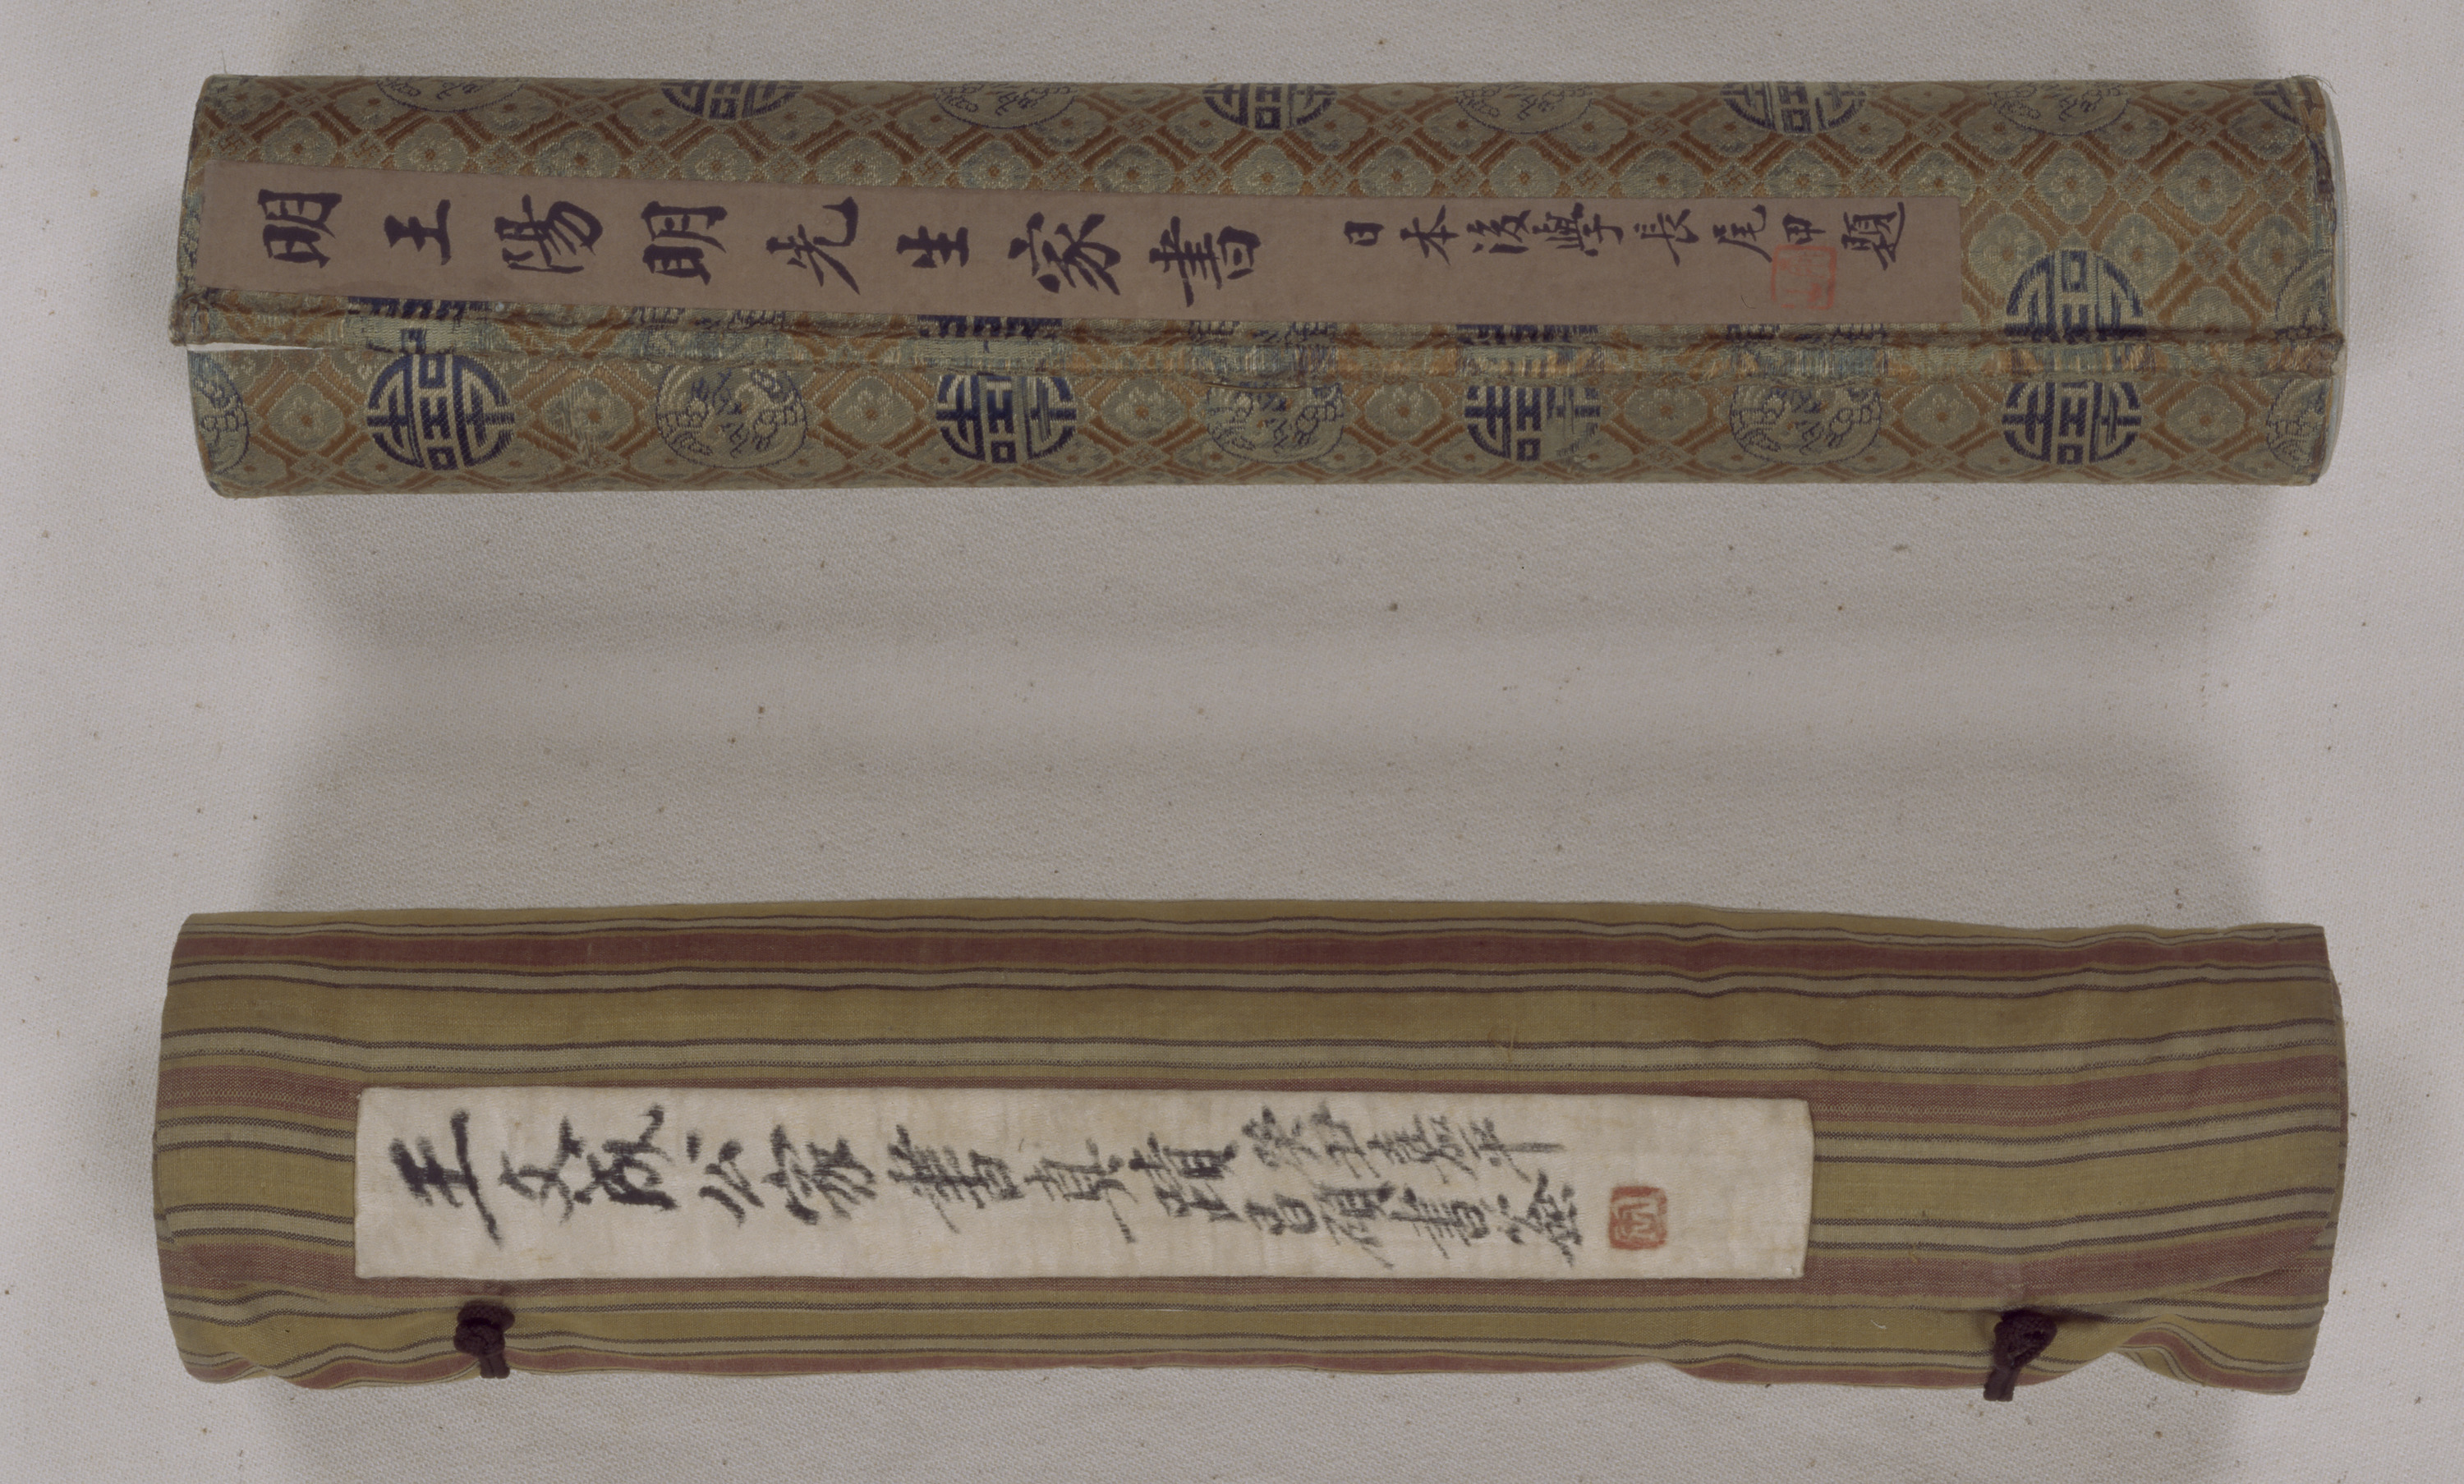 明王陽明先生家書
日本後學長尾甲題
王文成公家書真蹟
昌碩書簽